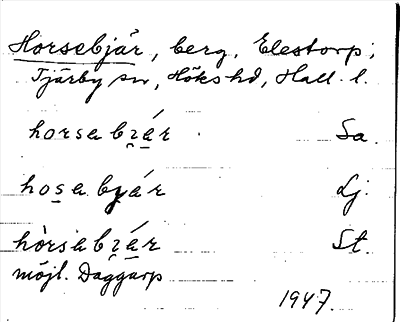 Horsebjär, berg, Elestorp;
Tjärby sn, Höks hd, Hall. l.
horsa bɪ̯ár Sa.
hosa bɪ̯ár Lj.
hòrsa bɪ̯ár St.
möjl. Daggarp
1947.